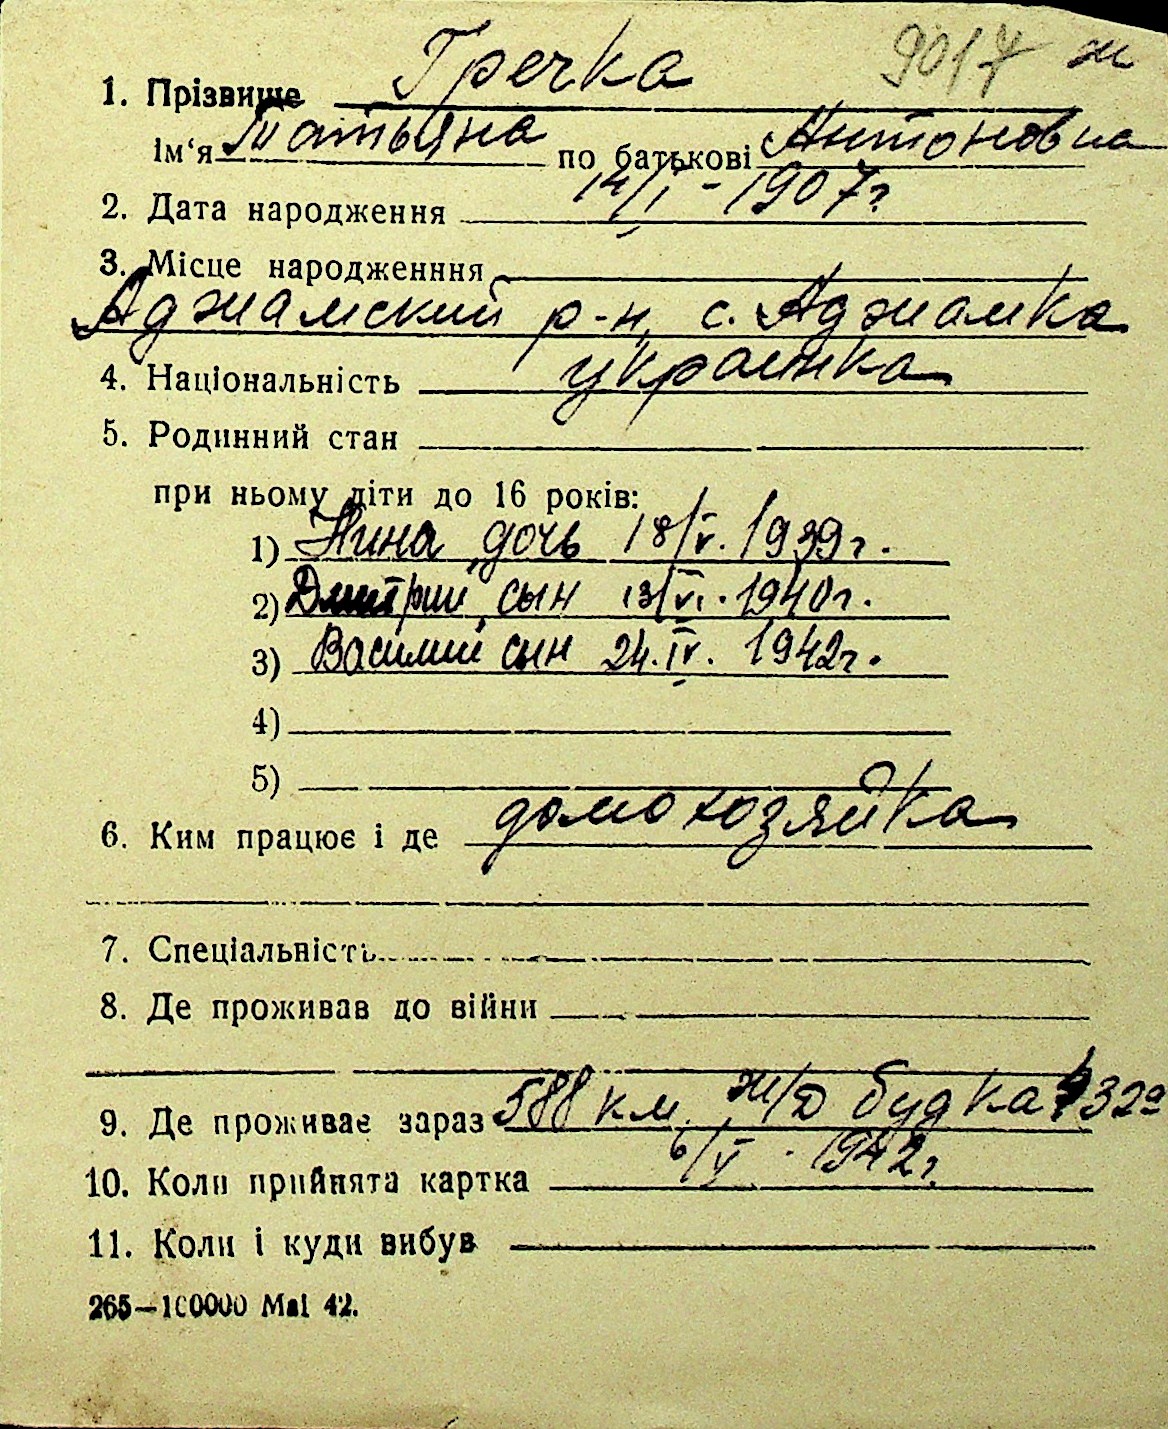 9017 ж
1. Прізвище Гречка
Ім‘я Татьяна по батькові Антоновна
2. Дата народження 14/I - 1907 г
3. Місце народженння
Аджамский р-н, с. Аджамка
4. Національність украинка
5. Родинний стан
при ньому діти до 16 років:
1) Нина дочь 18/V. 1939 г.
2) Дмитрий, сын 13/VI. 1940 г.
3) Василий сын 24.IV. 1942 г.
4)
5)
6. Ким працює і де домохозяйка
7. Спеціальність
8. Де проживав до війни
9. Де проживає зараз 588 км. ж/д будка 32а
10. Коли прийнята картка 6/V. 1942 г.
11. Коли і куди вибув
265—100000 Mai 42.